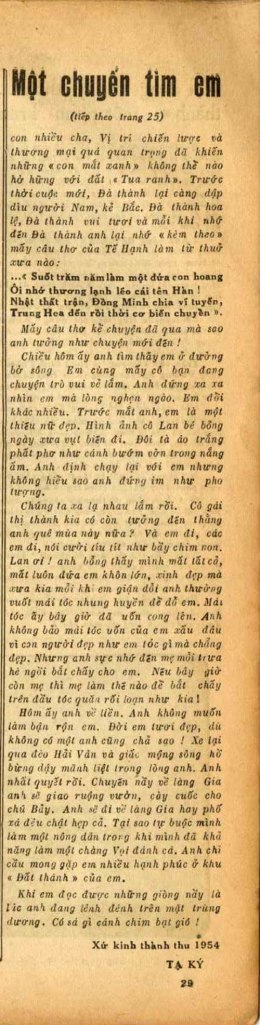 Một chuyến tìm em
(tiếp theo trang 25)
con nhiều cha, Vị trí chiến lược và
thương mại quá quan trọng đã khiến
những « con mắt xanh » không thể nào
hờ hững với đất « Tua ranh ». Trước
thời cuộc mới, Đà thành lại càng dập
dìu người Nam, kẻ Bắc. Đà thành hoa
lệ, Đà thành vui tươi và mỗi khi nhớ
đến Đà thành anh lại nhớ « kèm theo »
mấy câu thơ của Tế Hạnh làm từ thuở
xưa nào :
...« Suốt trăm năm làm một đứa con hoang
Ôi nhớ thương lạnh lẽo cái tên Hàn !
Nhật thất trận, Đồng Minh chia vĩ tuyến,
Trung Hoa đến rồi thời cơ biến chuyển ».
Mấy câu thơ kể chuyện đã qua mà sao
anh tưởng như chuyện mới đến !
Chiều hôm ấy anh tìm thấy em ở đường
bờ sông. Em cùng mấy cô bạn đang
chuyện trò vui vẻ lắm. Anh đứng xa xa
nhìn em mà lòng nghẹn ngào. Em đổi
khác nhiều. Trước mắt anh, em là một
thiếu nữ đẹp. Hình ảnh cô Lan bé bỏng
ngày xưa vụt biến đi. Đôi tà áo trắng
phất phơ như cánh bướm vờn trong nắng
ấm. Anh định chạy lại với em nhưng
không hiểu sao anh đứng im như pho
tượng.
Chúng ta xa lạ nhau lắm rồi. Cô gái
thị thành kia có còn tưởng đến thằng
anh quê mùa này nữa ? Và em đi, các
em đi, nói cười tíu tít như bầy chim non.
Lan ơi ! anh bỗng thấy mình mất tất cả,
mất luôn đứa em khôn lớn, xinh đẹp mà
xưa kia mỗi khi em giận dỗi anh thường
vuốt mái tóc nhung huyền để dỗ em. Mái
tóc ấy bây giờ đã uốn cong lên. Anh
không bảo mái tóc uốn của em xấu đâu
vì con người đẹp như em tóc gì mà chẳng
đẹp. Nhưng anh sực nhớ đến mẹ mỗi trưa
hè ngồi bắt chấy cho em. Nếu bây giờ
còn mẹ thì mẹ làm thế nào để bắt chấy
trên đầu tóc quăn rối loạn như kia !
Hôm ấy anh về liền. Anh không muốn
làm bận rộn em. Đời em tươi đẹp, dù
không có một anh cũng chả sao ! Xe lại
qua đèo Hải Vân và giấc mộng sông hồ
bừng dậy mãnh liệt trong lòng anh. Anh
nhất quyết rồi. Chuyến này về làng Gia
anh sẽ giao ruộng vườn, cày cuốc cho
chú Bảy. Anh sẽ đi vì làng Gia hay phố
xá đều chật hẹp cả. Tại sao tự buộc mình
làm một nông dân trong khi mình đã khả
năng làm một chàng Vọi đánh cá. Anh chỉ
cầu mong gặp em nhiều hạnh phúc ở khu
« Đất thánh » của em.
Khi em đọc được những giòng này là
lúc anh đang lênh đênh trên mặt trùng
dương. Có sá gì cánh chim bạt gió !
Xứ kinh thành thu 1954
TẠ KÝ
29